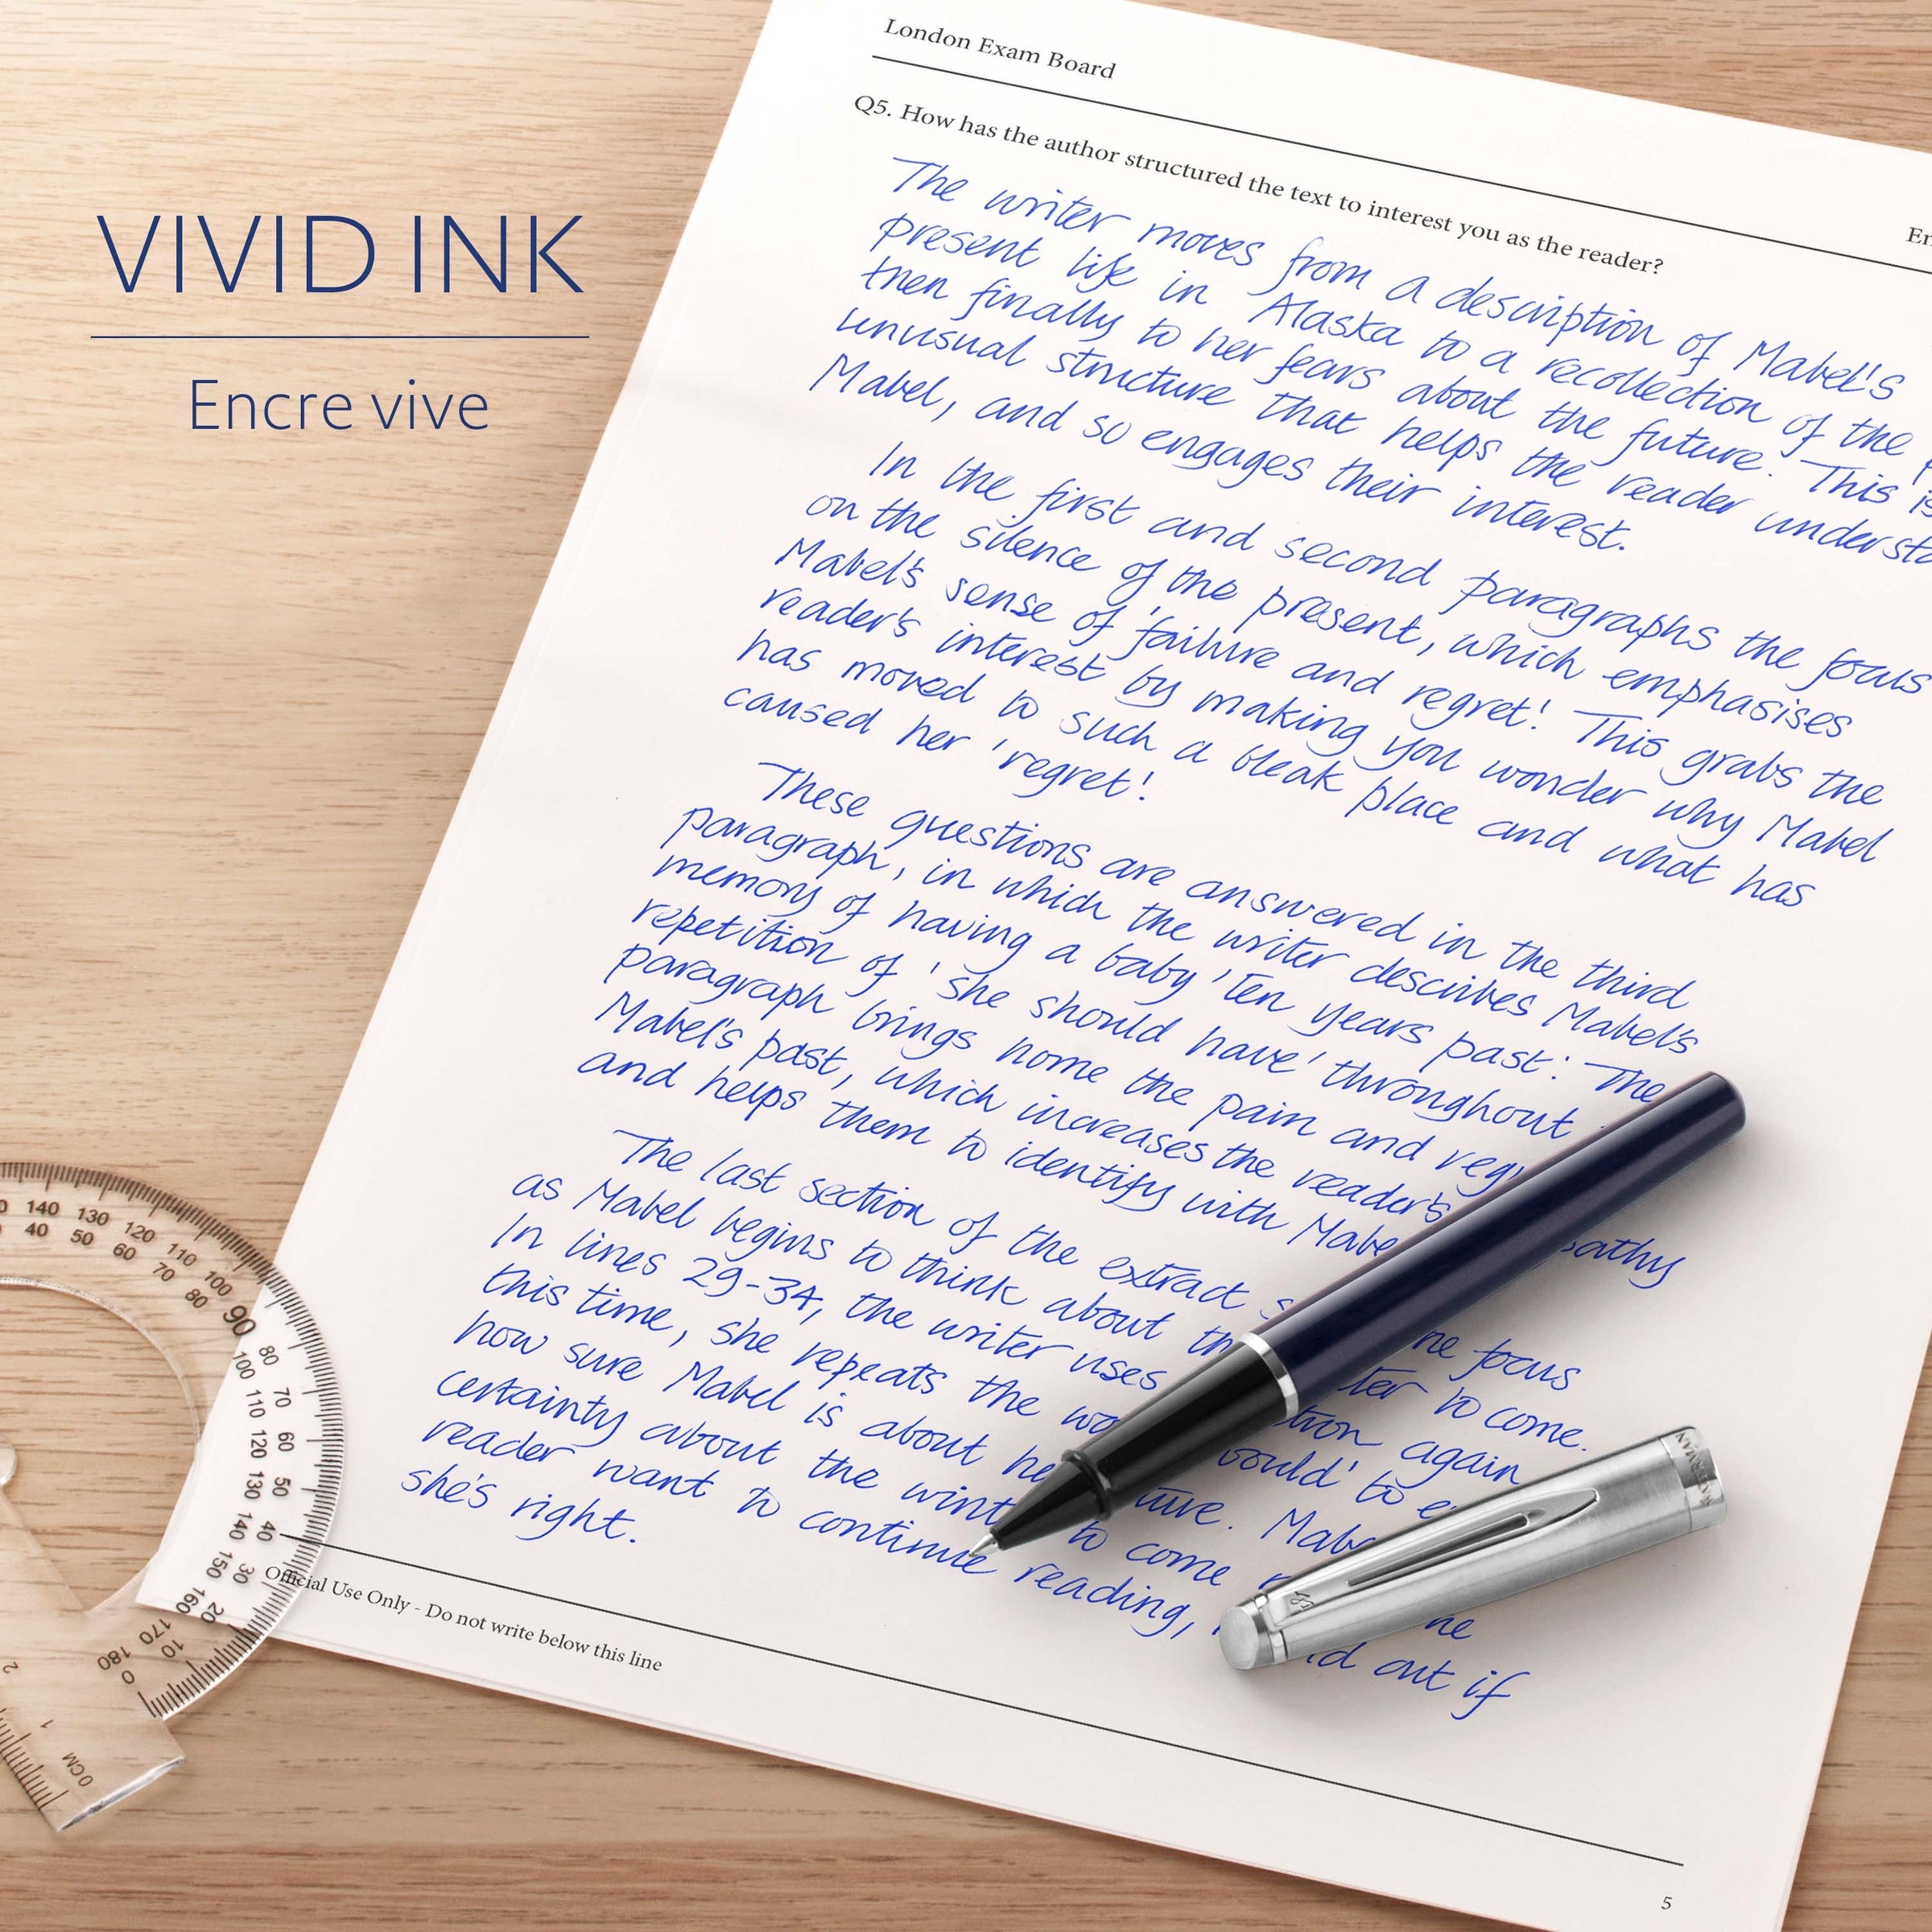 VIVID INK
Encre vive
London Exam Board
En
Q5. How has the author structured the text to interest you as the reader?
The writer moves from a description of Mabel's
present life in Alaska to a recollection of the
then finally to her fears about the future. This is
unusual structure that helps the reader understa
Mabel, and so engages their interest.
In the first and second paragraphs the focus
on the silence of the present, which emphasises
Mabel's sense of 'failure and regret'. This grabs the
reader's interest by making you wonder why Mabel
has moved to such a bleak place and what has
caused her 'regret'.
These questions are answered in the third
paragraph, in which the writer describes Mabel's
memory of having a baby 'ten years past'. The
repetition of 'she should have' throughout
paragraph brings home the pain and reg
Mabel's past, which increases the reader's athy
and helps them to identify with Mabe
The last section of the extract s he focus
as Mabel begins to think about th ter to come.
In lines 29-34, the writer uses tion again
this time, she repeats the wo would' to e
how sure Mabel is about he ture. Mabe
certainty about the wint to come he
reader want to continue reading, d out if
she's right.
Official Use Only - Do not write below this line
5
WATERMAN
140 130 120 110 100 90 80 70 60 50 40 30 20 10 0
40 50 60 70 80 100 110 120 130 140 150 160 170 180
0CM 1 2